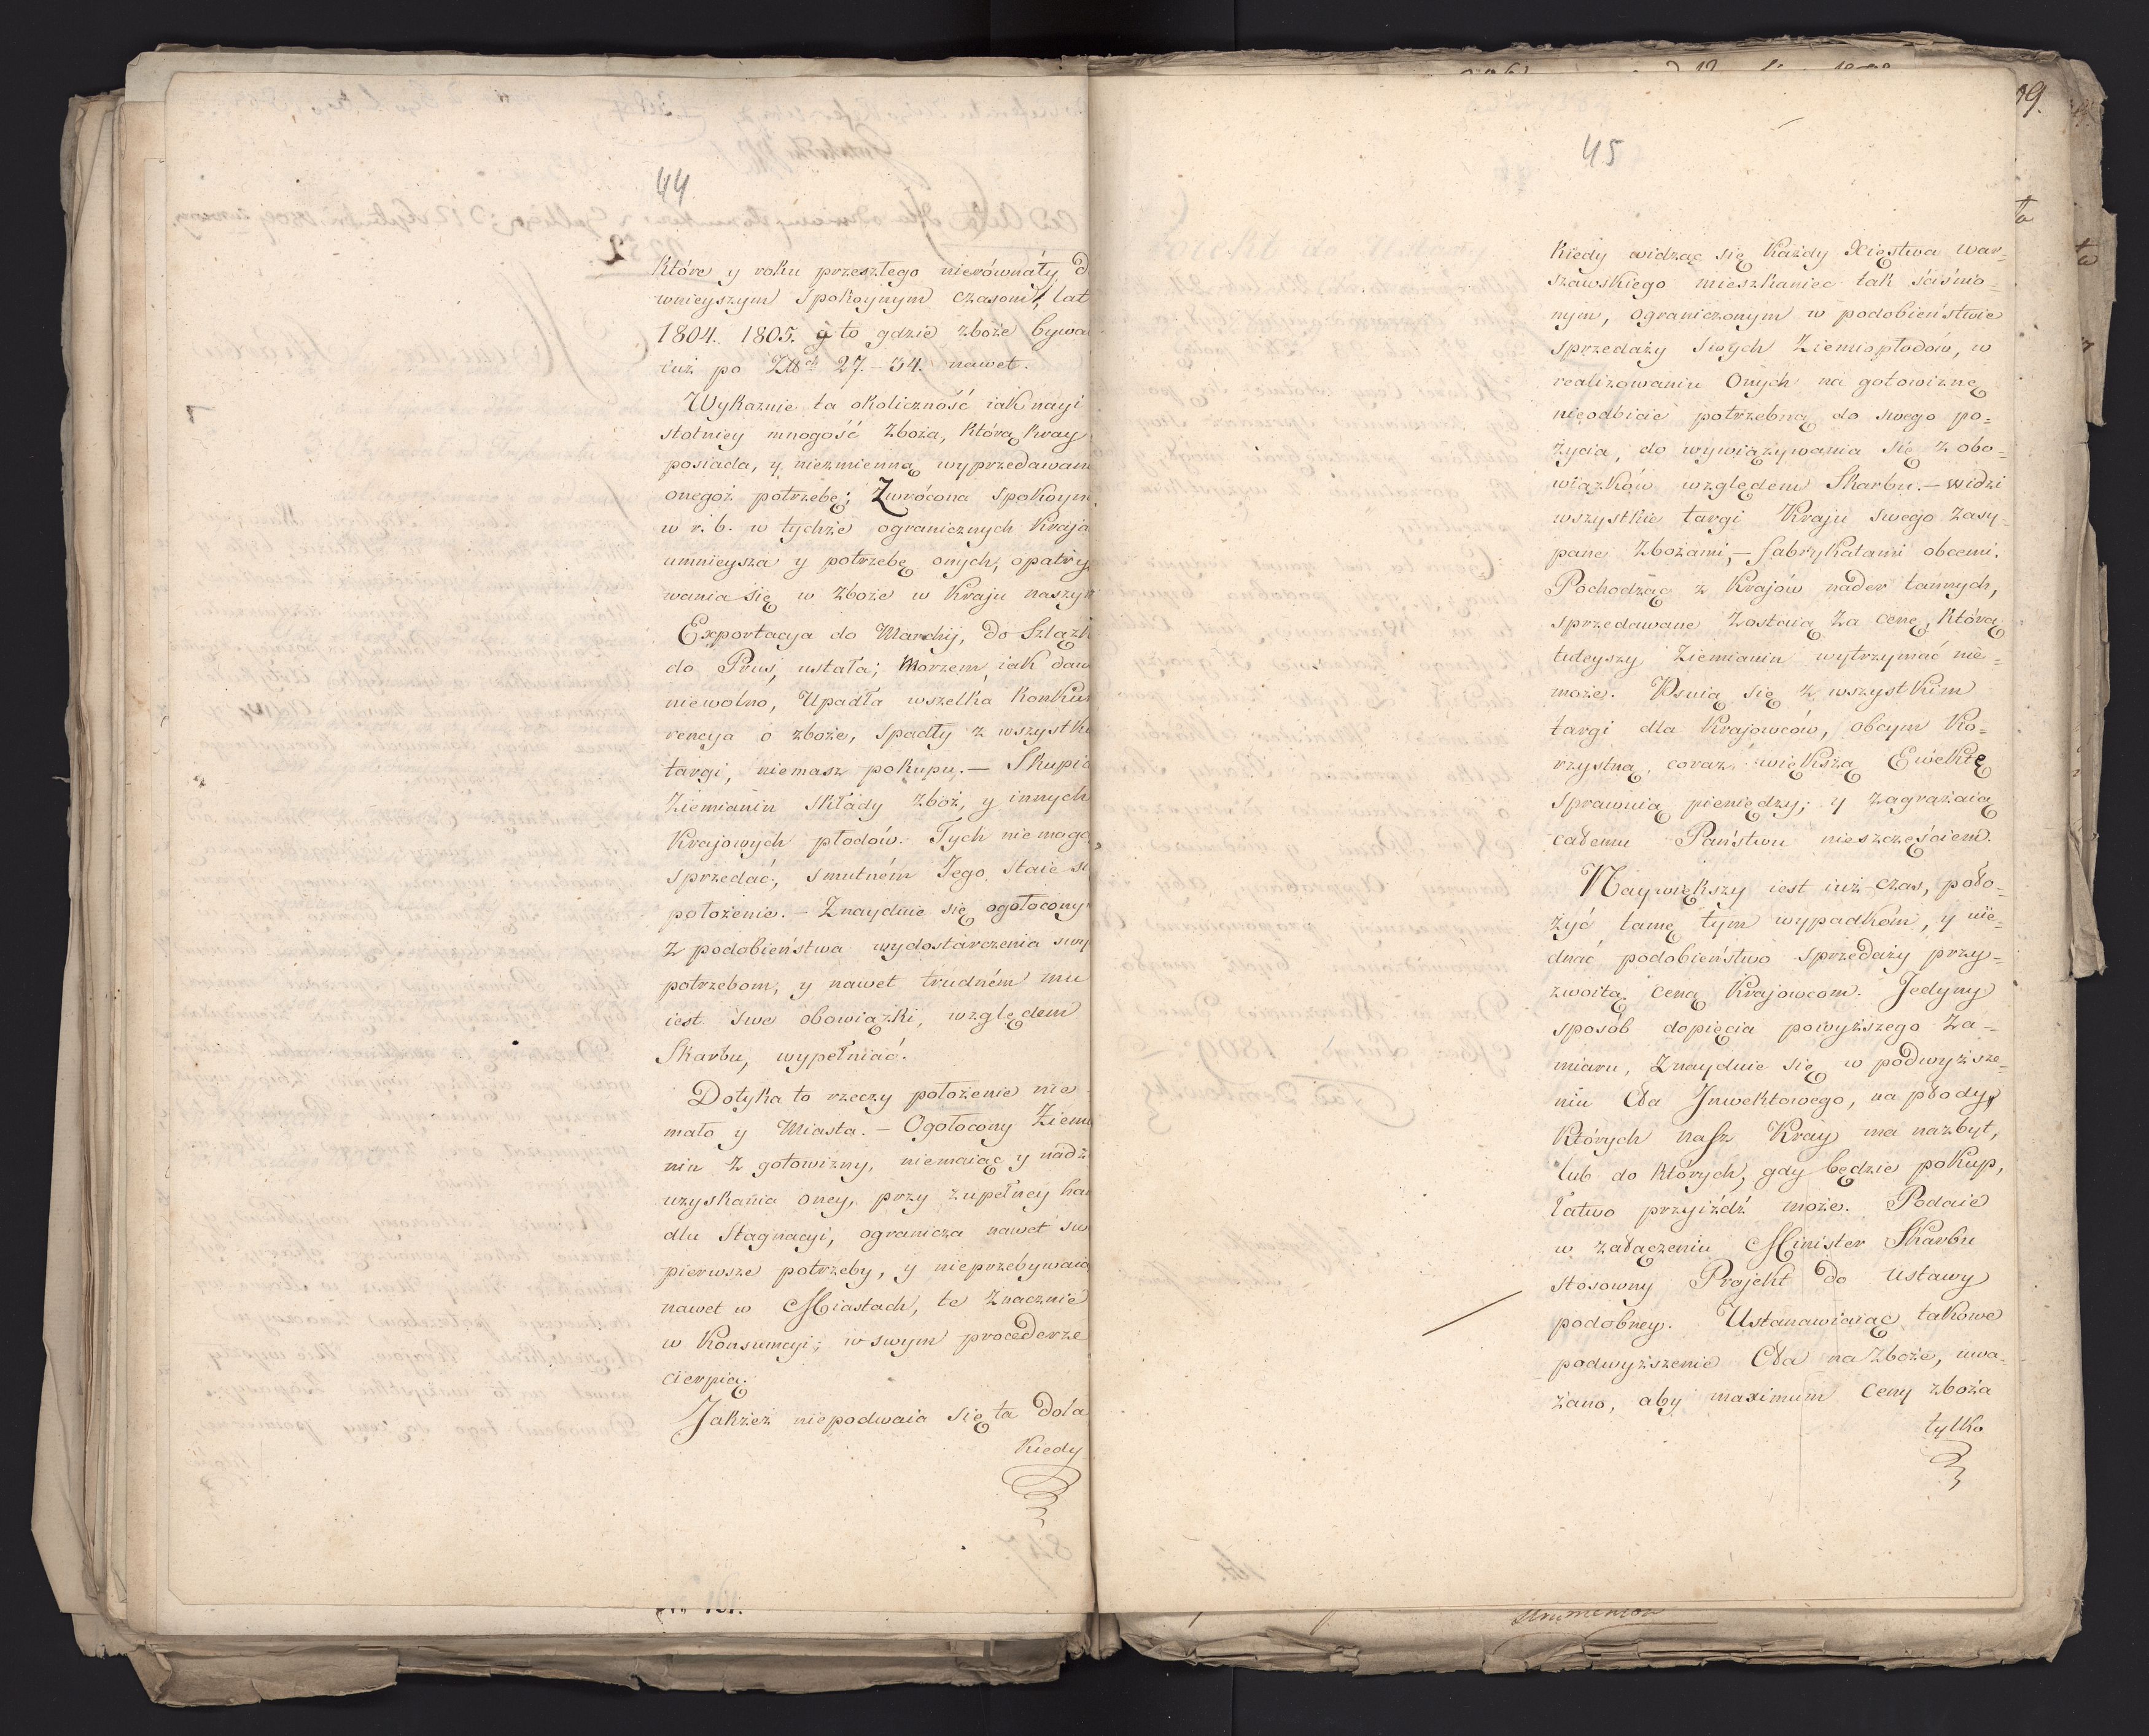 44
które y roku przeszłego nierównáły d
wnieyszym spokoynym czasom, lat
1804. 1805. y to gdzie zboże bywa
iuż po 27.–34. nawet.
Wykazuie ta okoliczność iak nayi
stotniey mnogość Zboża, którą kray
posiada, y niezmienną wyprzedawan
onegoż potrzebę; Zwrócona spokoyn
w r. b. w tychże ogranicznych Kraja
umnieysza y potrzebę onych, opatry
wania się w Zboże w Kraju naszym
Exportacya do Marchij, do Szląz
do Prus, ustała; Morzem, iak daw
niewolno, Upadła wszelka konkur
rencya o zboże, spadły z wszystki
targi, niemasz pokupu. — Skupia
Ziemianin składy zboż, y innych
Krajowych płodów. Tych niemogą
sprzedać, smutném Jego staie si
położenie. — Znayduie się ogołocony
z podobieństwa wydostarczenia swy
potrzebom, y nawet trudném mu
iest swe obowiązki, względem
Skarbu, wypełniać.
Dotyka to rzeczy położenie nie
mało y Miasta. — Ogołocony Ziemia
nin z gotowizny, niemaiąc y nadz
uzyskania oney, przy zupełney han
dlu Stagnacyi, ogranicza nawet sw
pierwsze potrzeby, y nieprzebywaią
nawet w Miastach, te Znacznie
w Konsumcyi; w swym procederze
cierpią.
Jakżeż niepodwaia się ta dola
Kiedy
45
kiedy widząc się każdy Xięstwa War-
szawskiego mieszkaniec tak ścieśnio-
nym, ograniczonym w podobieństwie
sprzedaży swych Ziemiopłodów, w
realizowaniu Onych na gotowiznę
nieodbicie potrzebną do swego po=
życia, do wywiązywania się z obo-
wiązków względem Skarbu. — widzi
wszystkie targi Kraju swego zasy-
pane Zbożami, — fabrykatami obcemi.
Pochodząc z Krajów nader tannych,
sprzedawane zostaią za cenę, którą
tuteyszy Ziemianin wytrzymać nie=
może. Psuią się z wszystkim
targi dla Krajowców, obcym ko=
rzystną, coraz większą Ewektę
sprawuią pieniędzy; y zagrażaią
całemu Państwu nieszczęściem.
Naywiększy iest iuż czas, poło=
żyć tamę tym wypadkóm, y ie-
dnać podobieństwo sprzedaży przy=
zwoitą ceną Krajowcom. Jedyny
sposób dopięcia powyższego Za-
miaru, Znayduie się w podwyższe-
niu Cła Inwektowego, na płody,
których nasz Kray ma nazbyt,
lub do których, gdy będzie pokup,
łatwo przyiźdź może. Podaie
w załączeniu Minister Skarbu
stosowny Projekt do Ustawy
podobney. Ustanawiaiąc takowe
podwyższenie Cła na Zboże, uwa-
żano, aby maximum ceny zboża
tylko